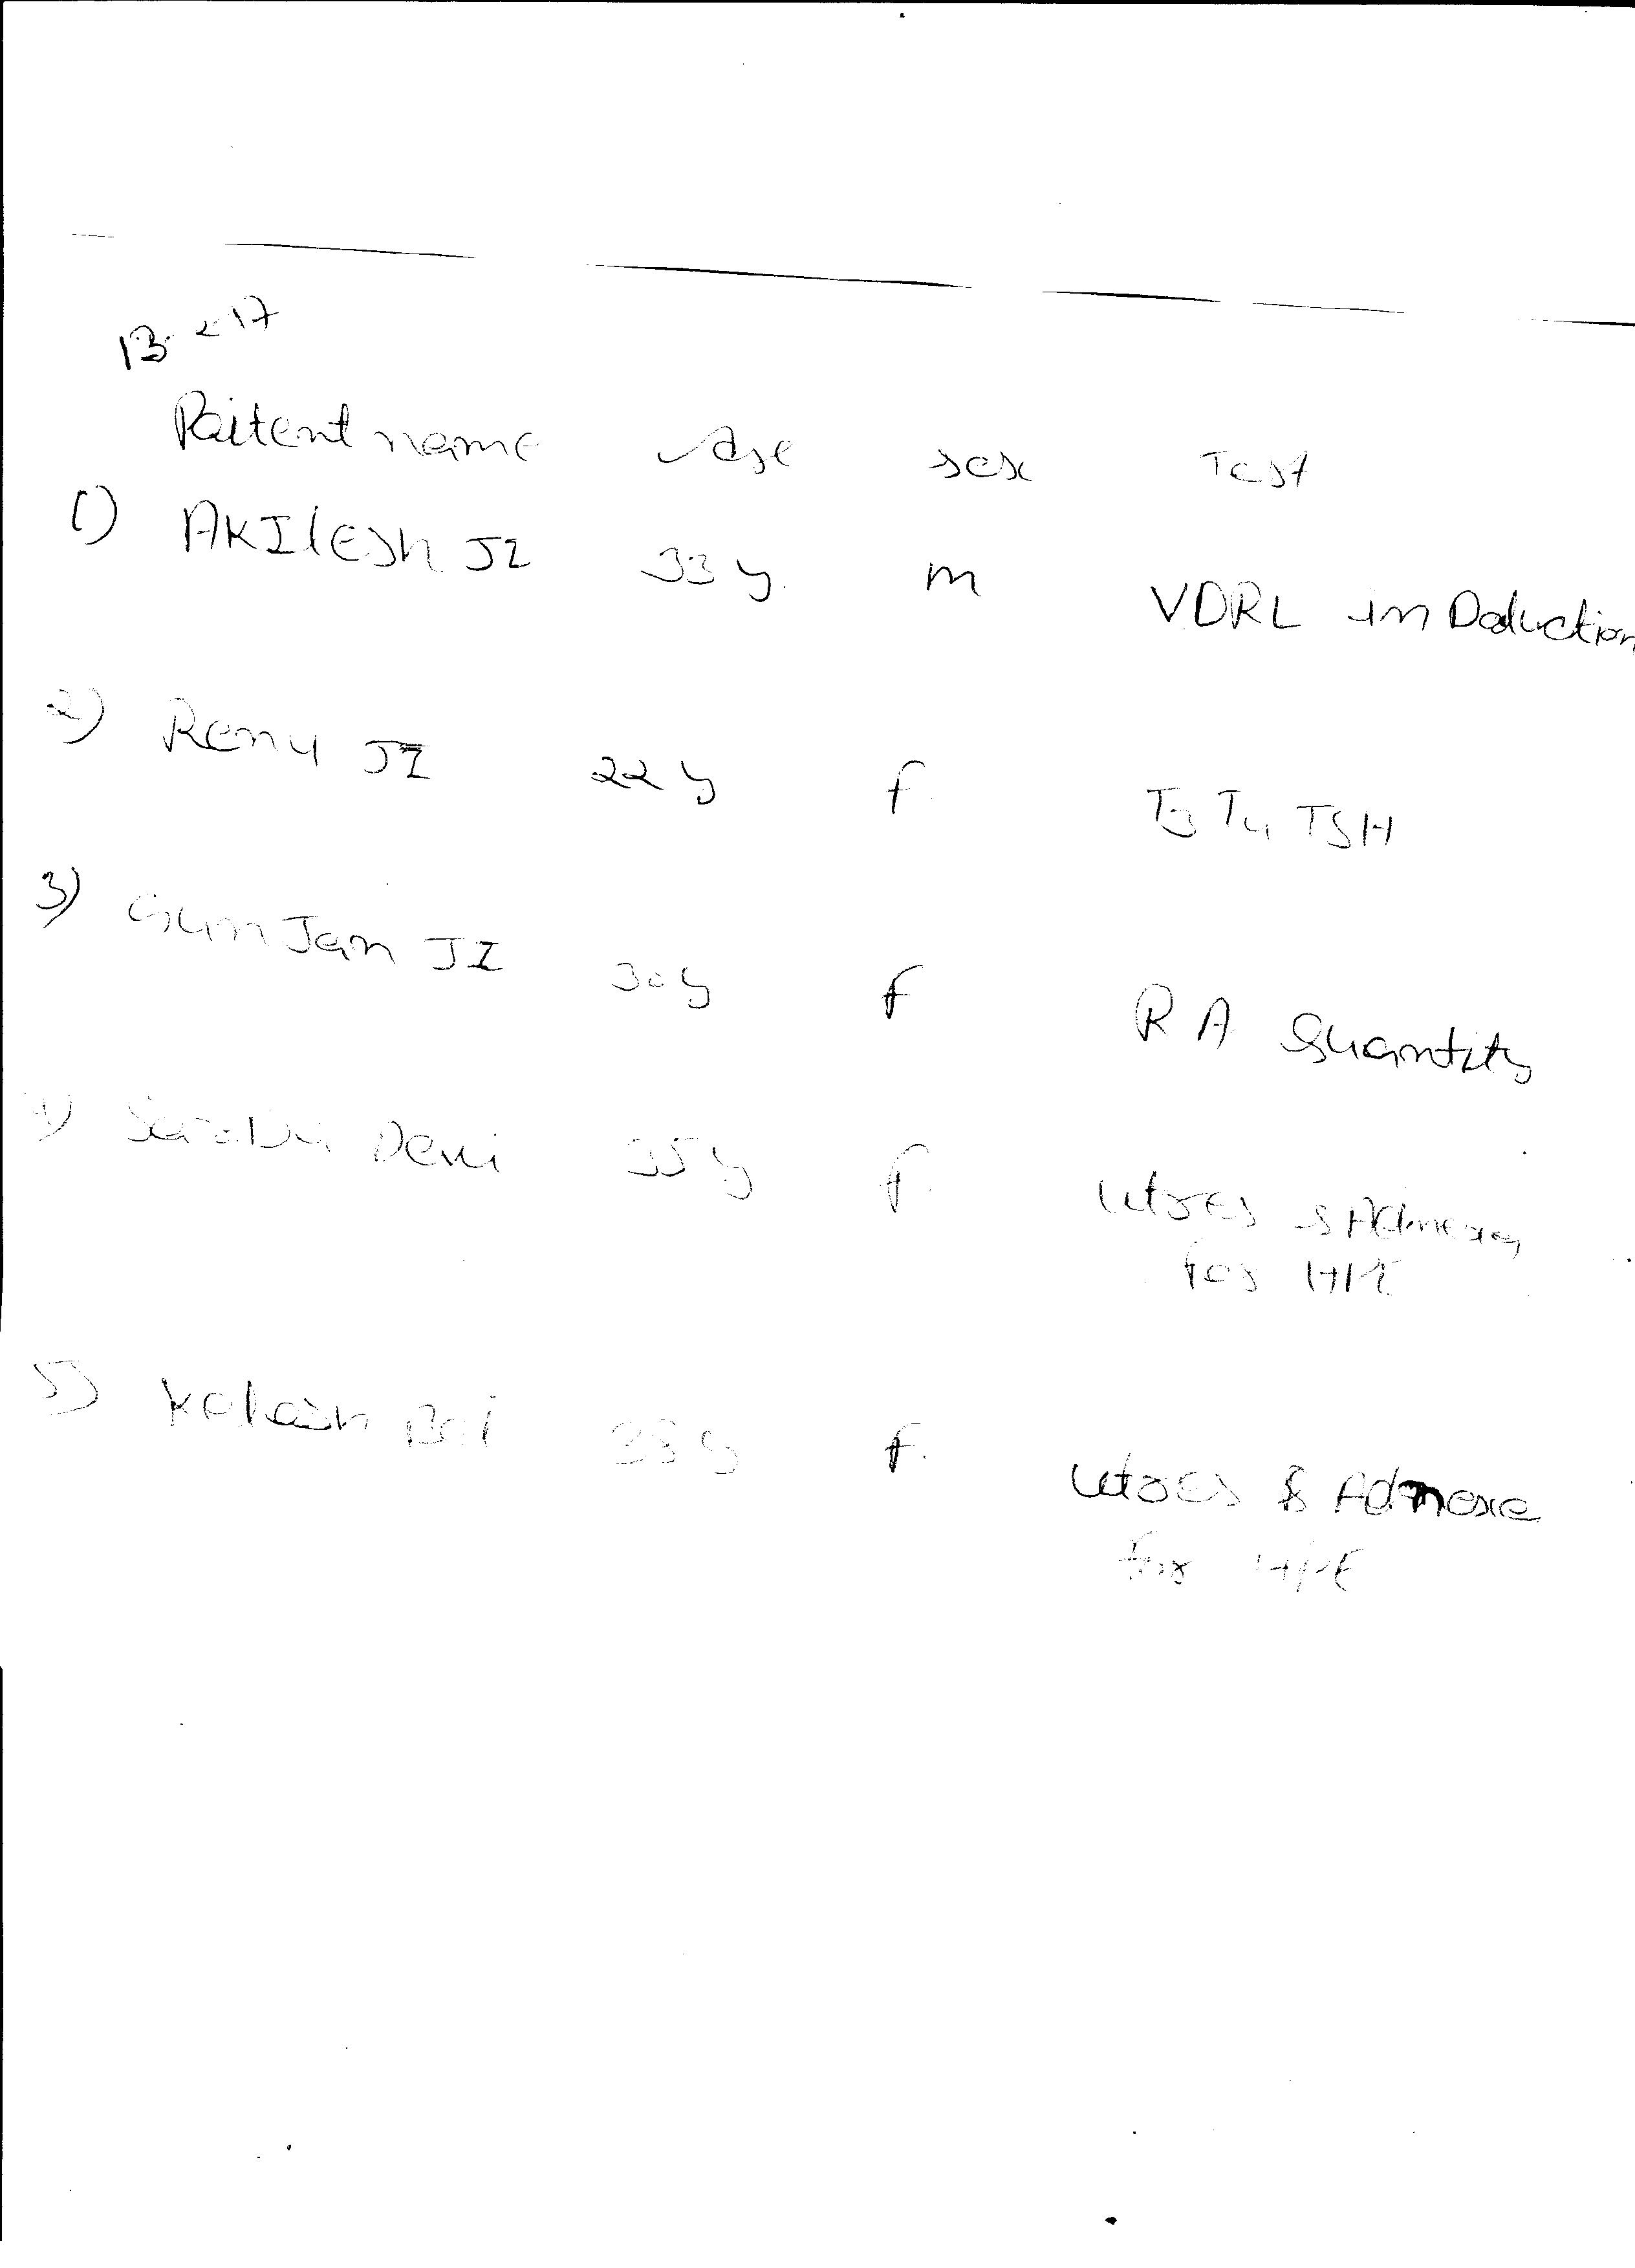 13-2-17
Paitent name Age sex Test
1) AKIlEsh JI 33y. m VDRL in Doduction
2) Renu JI 22 y f T3 T4 TSH
3) Gunjan JI 30y f R A Quantity
4) Devi 35 y f. Utres & Adnexa
for HPE
5) Kalash Bai 38 y f. Utres & Adnexe
For HPE